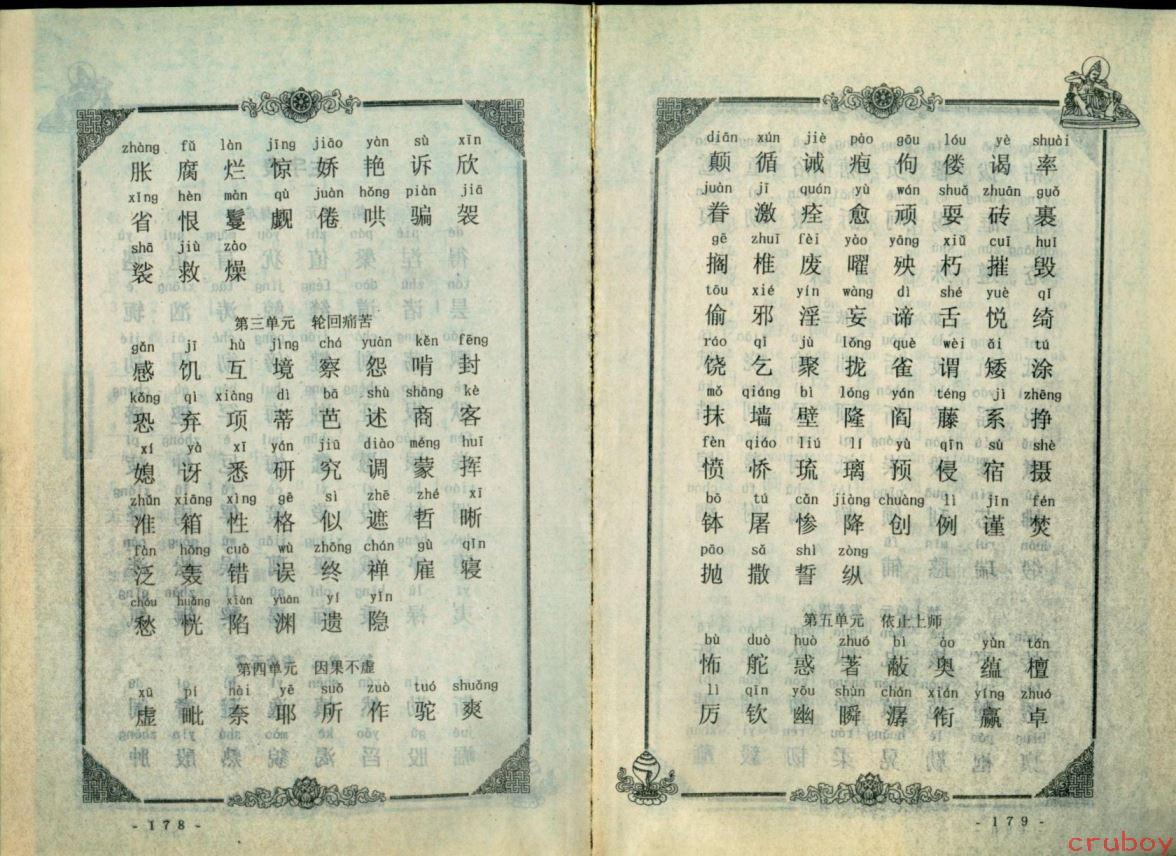 zhàng fǔ làn jīng jiāo yàn sù xīn
胀 腐 烂 惊 娇 艳 诉 欣
xǐng hèn màn qù juàn hǒng piàn jiā
省 恨 鬘 觑 倦 哄 骗 袈
shā jiù zào
裟 救 燥
第三单元 轮回痛苦
gǎn jī hù jìng chá yuàn kěn fēng
感 饥 互 境 察 怨 啃 封
kǒng qì xiàng dì bā shù shāng kè
恐 弃 项 蒂 芭 述 商 客
xí yà xī yán jiū diào méng huī
媳 讶 悉 研 究 调 蒙 挥
zhǔn xiāng xìng gé sì zhē zhé xī
准 箱 性 格 似 遮 哲 晰
fàn hōng cuò wù zhōng chán gù qǐn
泛 轰 错 误 终 禅 雇 寝
chóu huǎng xiàn yuān yí yǐn
愁 恍 陷 渊 遗 隐
第四单元 因果不虚
xū pí nài yē suǒ zuò tuó shuǎng
虚 毗 奈 耶 所 作 驼 爽
- 178 -
diān xún jiè pào gōu lóu yè shuài
颠 循 诫 疱 佝 偻 谒 率
juàn jī quán yù wán shuǎ zhuān guǒ
眷 激 痊 愈 顽 耍 砖 裹
gē zhuī fèi yào yāng xiǔ cuī huǐ
搁 椎 废 曜 殃 朽 摧 毁
tōu xié yín wàng dì shé yuè qǐ
偷 邪 淫 妄 谛 舌 悦 绮
ráo qǐ jù lǒng què wèi ǎi tú
饶 乞 聚 拢 雀 谓 矮 涂
mǒ qiáng bì lóng yán téng jì zhēng
抹 墙 壁 隆 阎 藤 系 挣
fèn qiáo liú lí yù qīn sù shè
愤 侨 琉 璃 预 侵 宿 摄
bō tú cǎn jiàng chuàng lì jǐn fén
钵 屠 惨 降 创 例 谨 焚
pāo sǎ shì zòng
抛 撒 誓 纵
第五单元 依止上师
bù duò huò zhuó bì ào yùn tán
怖 舵 惑 著 蔽 奥 蕴 檀
lì qīn yōu shùn chán xián yíng zhuó
厉 钦 幽 瞬 潺 衔 赢 卓
- 179 -
cruboy